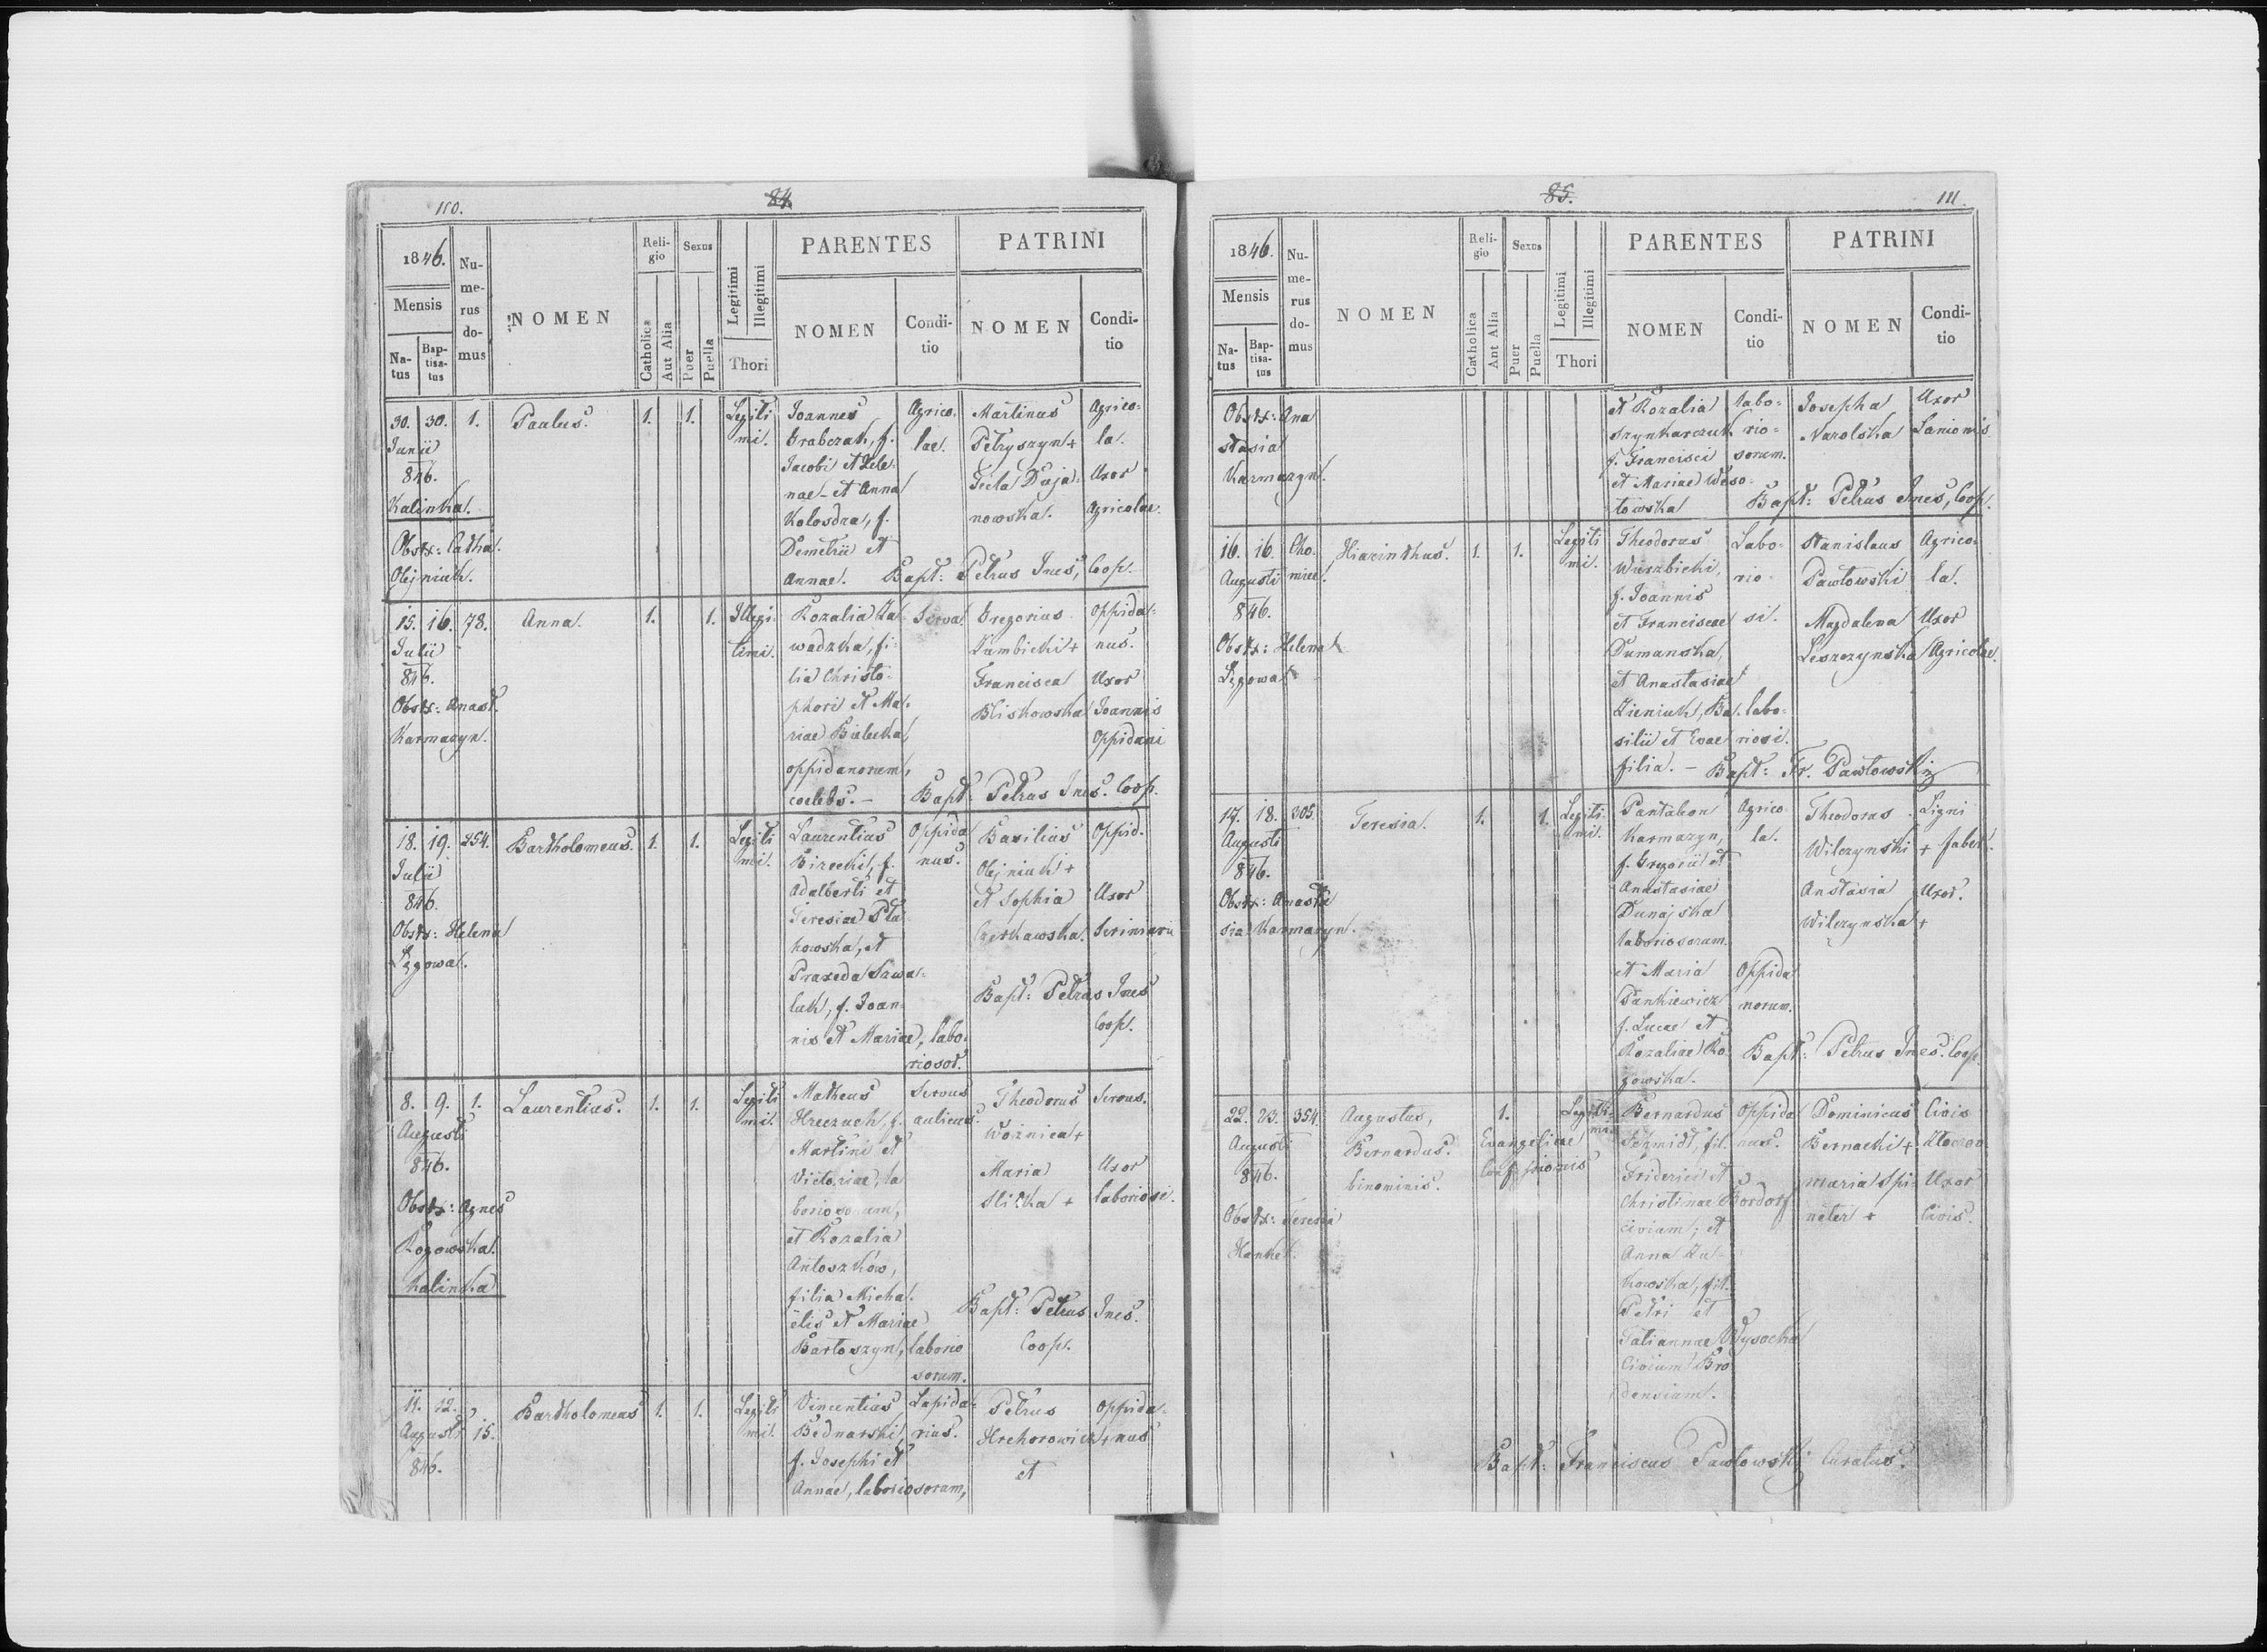 110.
84.
1846.
Mensis
Na-
tus
Bap-
tisa-
tus
Nu-
me-
rus
do-
mus
NOMEN
Reli-
gio
Catholica
Aut Alia
Sexus
Puer
Puella
Legitimi
Illegitimi
Thori
PARENTES
NOMEN
Condi-
tio
PATRINI
NOMEN
Condi-
tio
30. 30. 1.
Junii
846.
Kalinka.
Obstx: Catha.
Olejniuk.
Paulus.
1. 1.
Legiti
mi.
Joannes
Grabczak, f.
Jacobi et Hele-
nae - et Anna
Kolosdra, f.
Demetrii et
Annae.
Agrico-
lae.
Martinus
Petryszyn +
Tecla Duja-
nowska.
Agrico-
la.
Uxor
Agricolae.
Bapt: Petrus Ines, Coop.
15. 16. 78.
Julii
846.
Obstx: Anast.
Karmazyn.
Anna.
1. 1.
Illegi-
timi.
Rozalia Za-
wadzka, fi-
lia Christo-
phori et Ma-
riae Bielecka,
oppidanorum,
coelebs. -
Serva.
Gregorius
Dumbicki +
Francisca
Bliskowska
Oppida-
nus.
Uxor
Joannis
Oppidani
Bapt: Petrus Ines. Coop.
18. 19. 254.
Julii
846.
Obstx: Helena
Lęgowa.
Bartholomeus.
1. 1.
Legiti
mi.
Laurentius
Birecki, f.
Adalberti et
Teresiae Pta-
kowska, et
Praxeda Sawa-
luk, f. Joan-
nis et Mariae, labo-
riosor.
Oppida
nus.
Basilius
Olejniuk +
et Sophia
Czerkawska.
Oppid.
Uxor
Scriniarii
Bapt: Petrus Ines
Coop.
8. 9. 1.
Augusti
846.
Obstx: Agnes
Rogowska.
Kalinka
Laurentius.
1. 1.
Legiti
mi.
Matheus
Hreczuch, f.
Martini et
Victoriae, la
boriosorum,
et Rozalia
Antoszkow,
filia Micha-
elis et Mariae
Bartoszyn, laborio
sorum.
Servus
aulicus.
Theodorus
Woźnica +
Maria
+
Servus.
Uxor
laboriosi.
Bapt: Petrus Ines.
Coop.
11. 12.
Augusti 15.
846.
Bartholomeus
1. 1.
Legiti
mi.
Vincentius
Bednarski,
f. Josephi et
Annae, laboriosorum,
Lapida-
rius.
Petrus
Hrehorowicz +
et
Oppida-
nus
85.
111.
1846.
Mensis
Na-
tus
Bap-
tisa-
tus
Nu-
me-
rus
do-
mus
NOMEN
Reli-
gio
Catholica
Ant Alia
Sexus
Puer
Puella
Legitimi
Illegitimi
Thori
PARENTES
NOMEN
Condi-
tio
PATRINI
NOMEN
Condi-
tio
Obstx: Ana
stasia
Karmazyn.
et Rozalia
Szynkarczuk
f. Francisci
et Mariae Weso-
łowska
labo-
rio-
sorum.
Josepha
Narolska
Uxor
Lanionis
Bapt: Petrus Ines, Coop.
16. 16. Cho-
Augusti miec.
846.
Obstx: Helena
Lęgowa
Hiacinthus.
1. 1.
Legiti
mi.
Theodorus
Wierzbicki,
f. Joannis
et Franciscae
Dumanska,
et Anastasiae
Zieniuk, Ba-
silii et Evae
filia. -
Labo-
rio-
si.
labo-
riosi.
Stanislaus
Pawłowski
Magdalena
Leszczynska
Agrico-
la.
Uxor
Agricolae.
Bapt: Fr. Pawłowski
17. 18. 305.
Augusti
846.
Obstx: Anasta
sia Karmazyn.
Teresia.
1. 1.
Legiti.
mi.
Pantaleon
Karmazyn,
f. Gregorii et
Anastasiae
Dunajska
laboriosorum.
et Maria
Pankiewicz
f. Lucae et
Rozaliae Ro-
gowska.
Agrico-
la.
Oppida
norum.
Theodorus
Wilczynski +
Anastasia
Wilczynska +
Ligni
faber.
Uxor.
Bapt: Petrus Ines. Coop.
22. 23. 354.
Augusti
846.
Obstx: Teresia
Hankel.
Augustus,
Bernardus.
binominis.
1.
Evangelicae
Confessionis
Legiti-
mi
Bernardus
Schmidt, fil.
Friderici et
Christinae Bordorf
civium; et
Anna Zu-
kowska, fil.
Petri et
Tatiannae Wysocka
Civium Bro
densium.
Oppida
nus.
Dominicus
Bernacki +
Maria Spi-
neter +
Civis
Złoczov
Uxor
Civis.
Bapt: Franciscus Pawłowski Curatus.